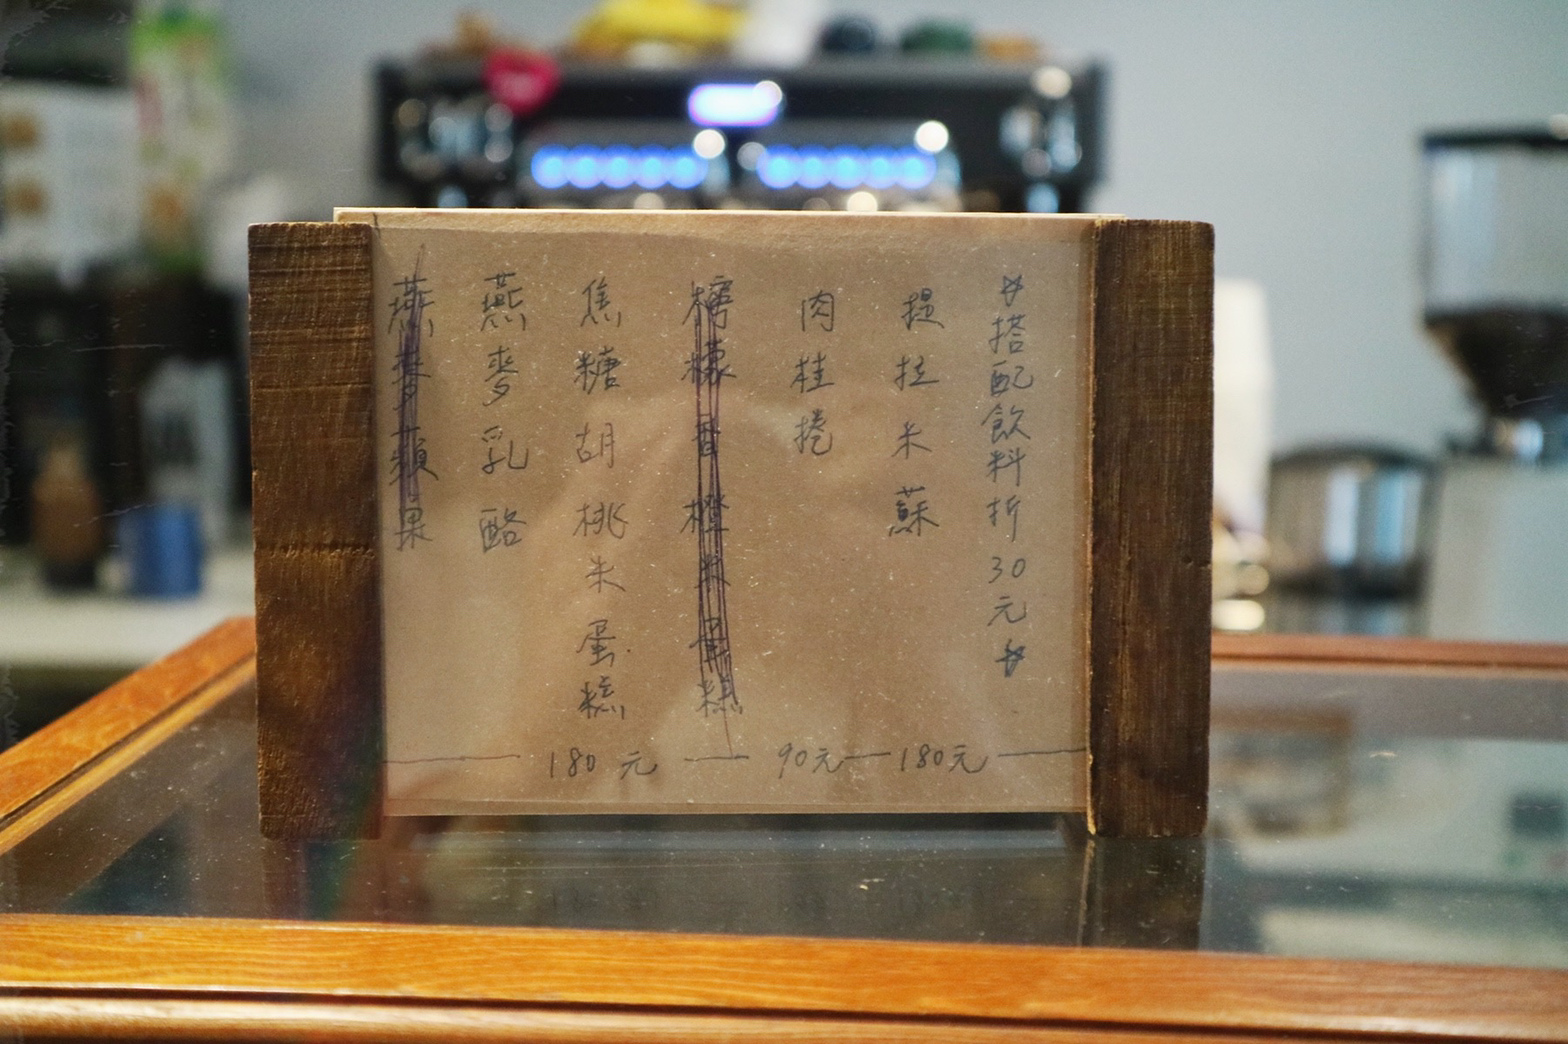 搭配飲料折30元
提拉米蘇
肉桂捲
焦糖胡桃米蛋糕
燕麥乳酪
180元 90元 180元